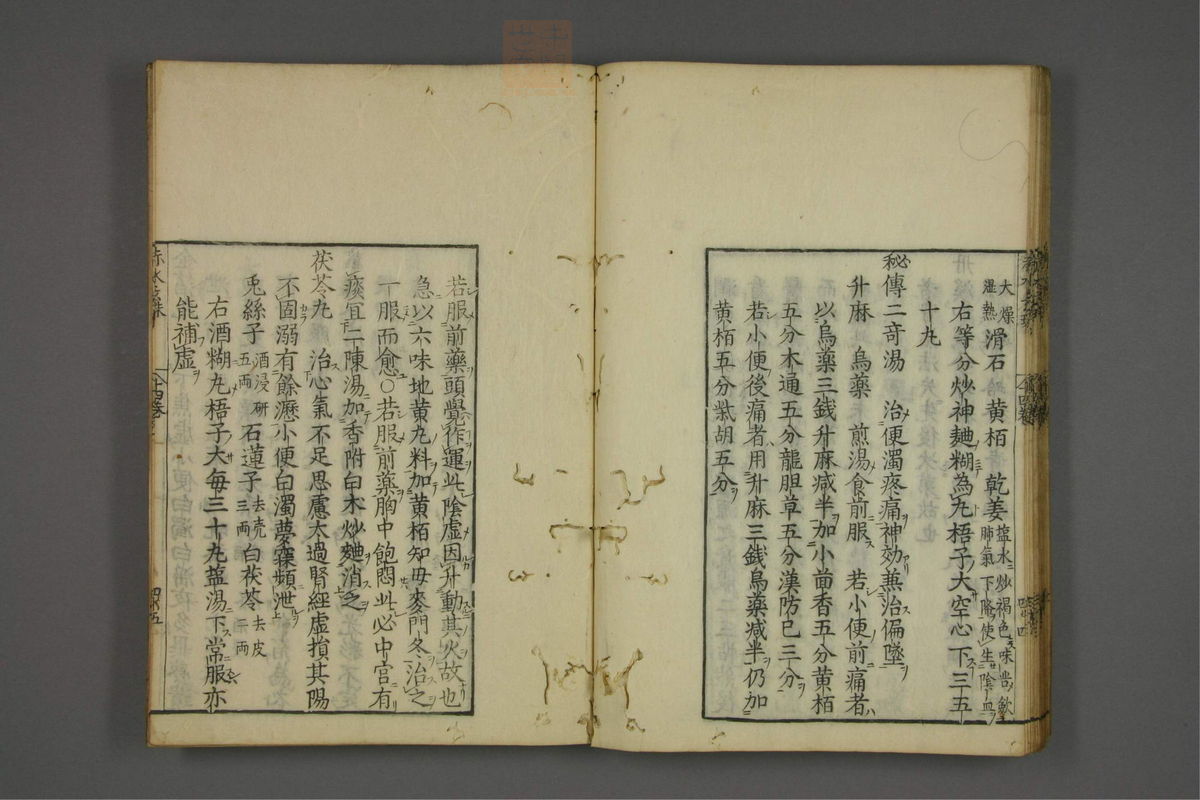 大燥濕熱滑石 黄栢 乾姜塩水炒褐色味苦歛肺氣下隂使生陰血
右等分炒神麯糊為丸梧子大空心下三五
十丸
秘傳二奇湯 治便濁疼痛神効兼治偏墜
升麻 烏薬 煎湯食前服 若小便前痛者
以烏薬三銭升麻减半加小茴香五分黄栢
五分木通五分龍胆草五分漢防巳三分
若小便後痛者用升麻三銭烏薬减半仍加
黄栢五分柴胡五分
若服前薬頭覺作運此陰虚因升動其火故也
急以六味地黄丸料加黄栢知母麥門冬治之
一服而愈○若服前薬胸中飽悶此必中宮有
痰宜二陳湯加香附白木炒麯消之
茯苓丸 治心氣不足思慮太過腎經虚損其陽
不固溺有餘瀝小便白濁夢寐頻泄
兎絲子酒浸研五両石蓮子去壳三両白茯苓去皮二両
右酒糊丸梧子大每三十丸塩湯下常服亦
能補虚
赤水玄珠